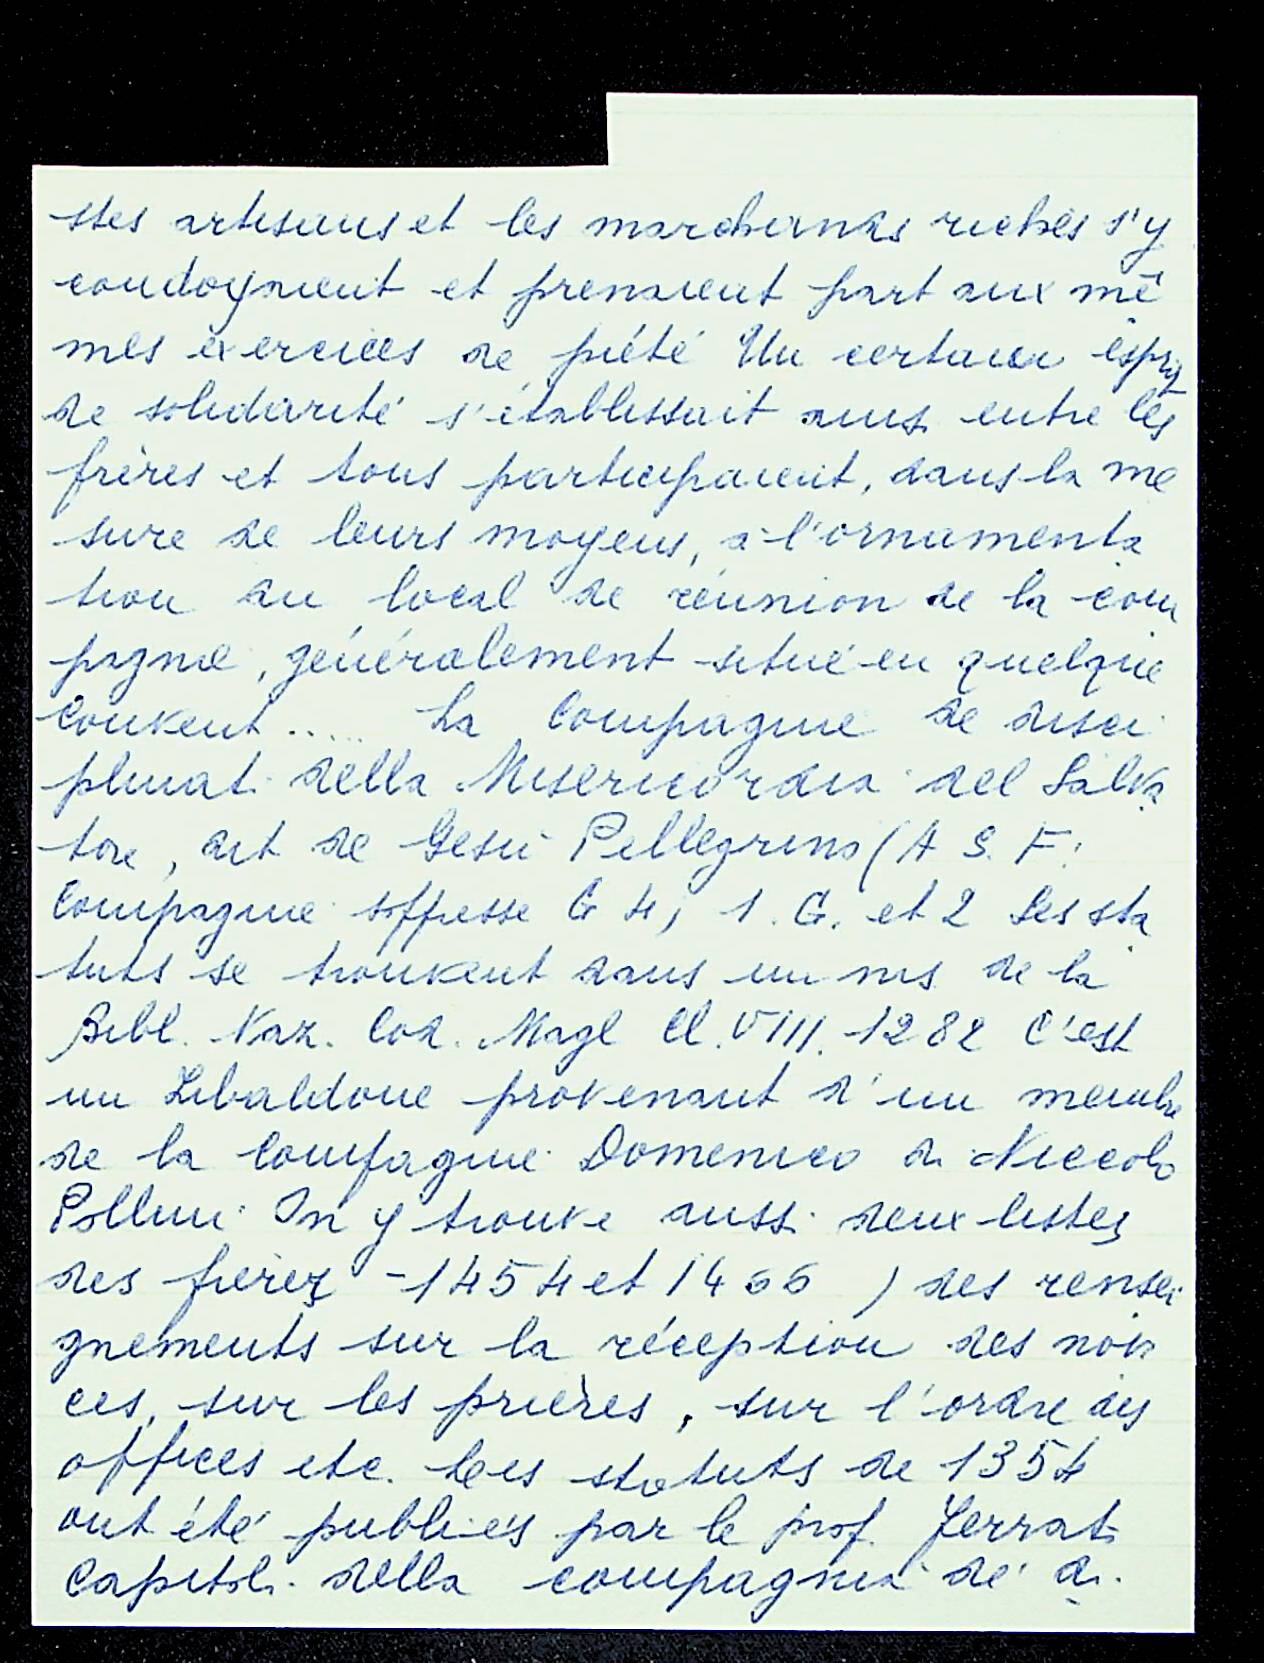 stes artisans et les marchands riches s'y
coudoyaient et prenaient part aux mê
mes exercices de piété Un certain esprit
de solidarité s'établissait ainsi entre les
frères et tous participaient, dans la me
sure de leurs moyens, à l'ornamenta
tion du local de réunion de la com
pagnie, généralement situé en quelque
couvent ..... La Compagnie de disci
plinati della Misericordia del Salva
tore, dit de Gesù Pellegrino (A S. F.
Compagnie soppresse G 4, 1. G. et 2 Les sta
tuts se trouvent dans un ms de la
Bibl. Naz. Cod. Magl Cl. VIII. 1282 C'est
un Zibaldone provenant d'un membre
de la Compagnie Domenico di Niccolo
Pollini On y trouve aussi deux listes
des frères -1454 et 1466 ) des rensei
gnements sur la réception des novi
ces, sur les prières, sur l'ordre des
offices etc. Les statuts de 1354
ont été publiés par le prof. Ferrati
Capitoli della compagnia de' di.